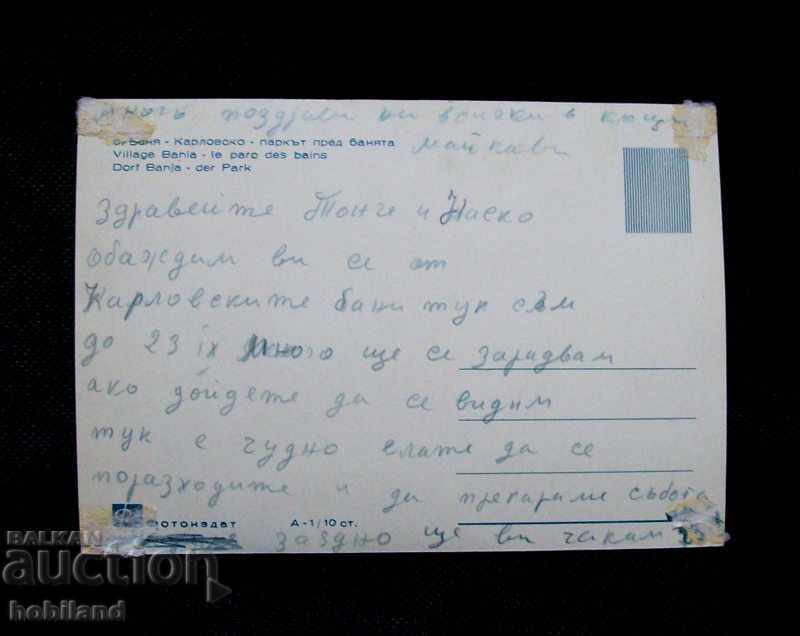 много поздрави на всички в къщи
с. Баня - Карловско - паркът пред банята
майкави
Village Bania - le parc des bains
Dorf Banja - der Park
Здравейте Тонче и Наско
обаждам ви се от
Карловските бани тук съм
до 23 IX много ще се зарадвам
ако дойдете да се видим
тук е чудно елате да се
поразходите и да прекараме събота
Фотоиздат А-1/10 ст.
заедно ще ви чакам
BALKAN
auction
hobiland